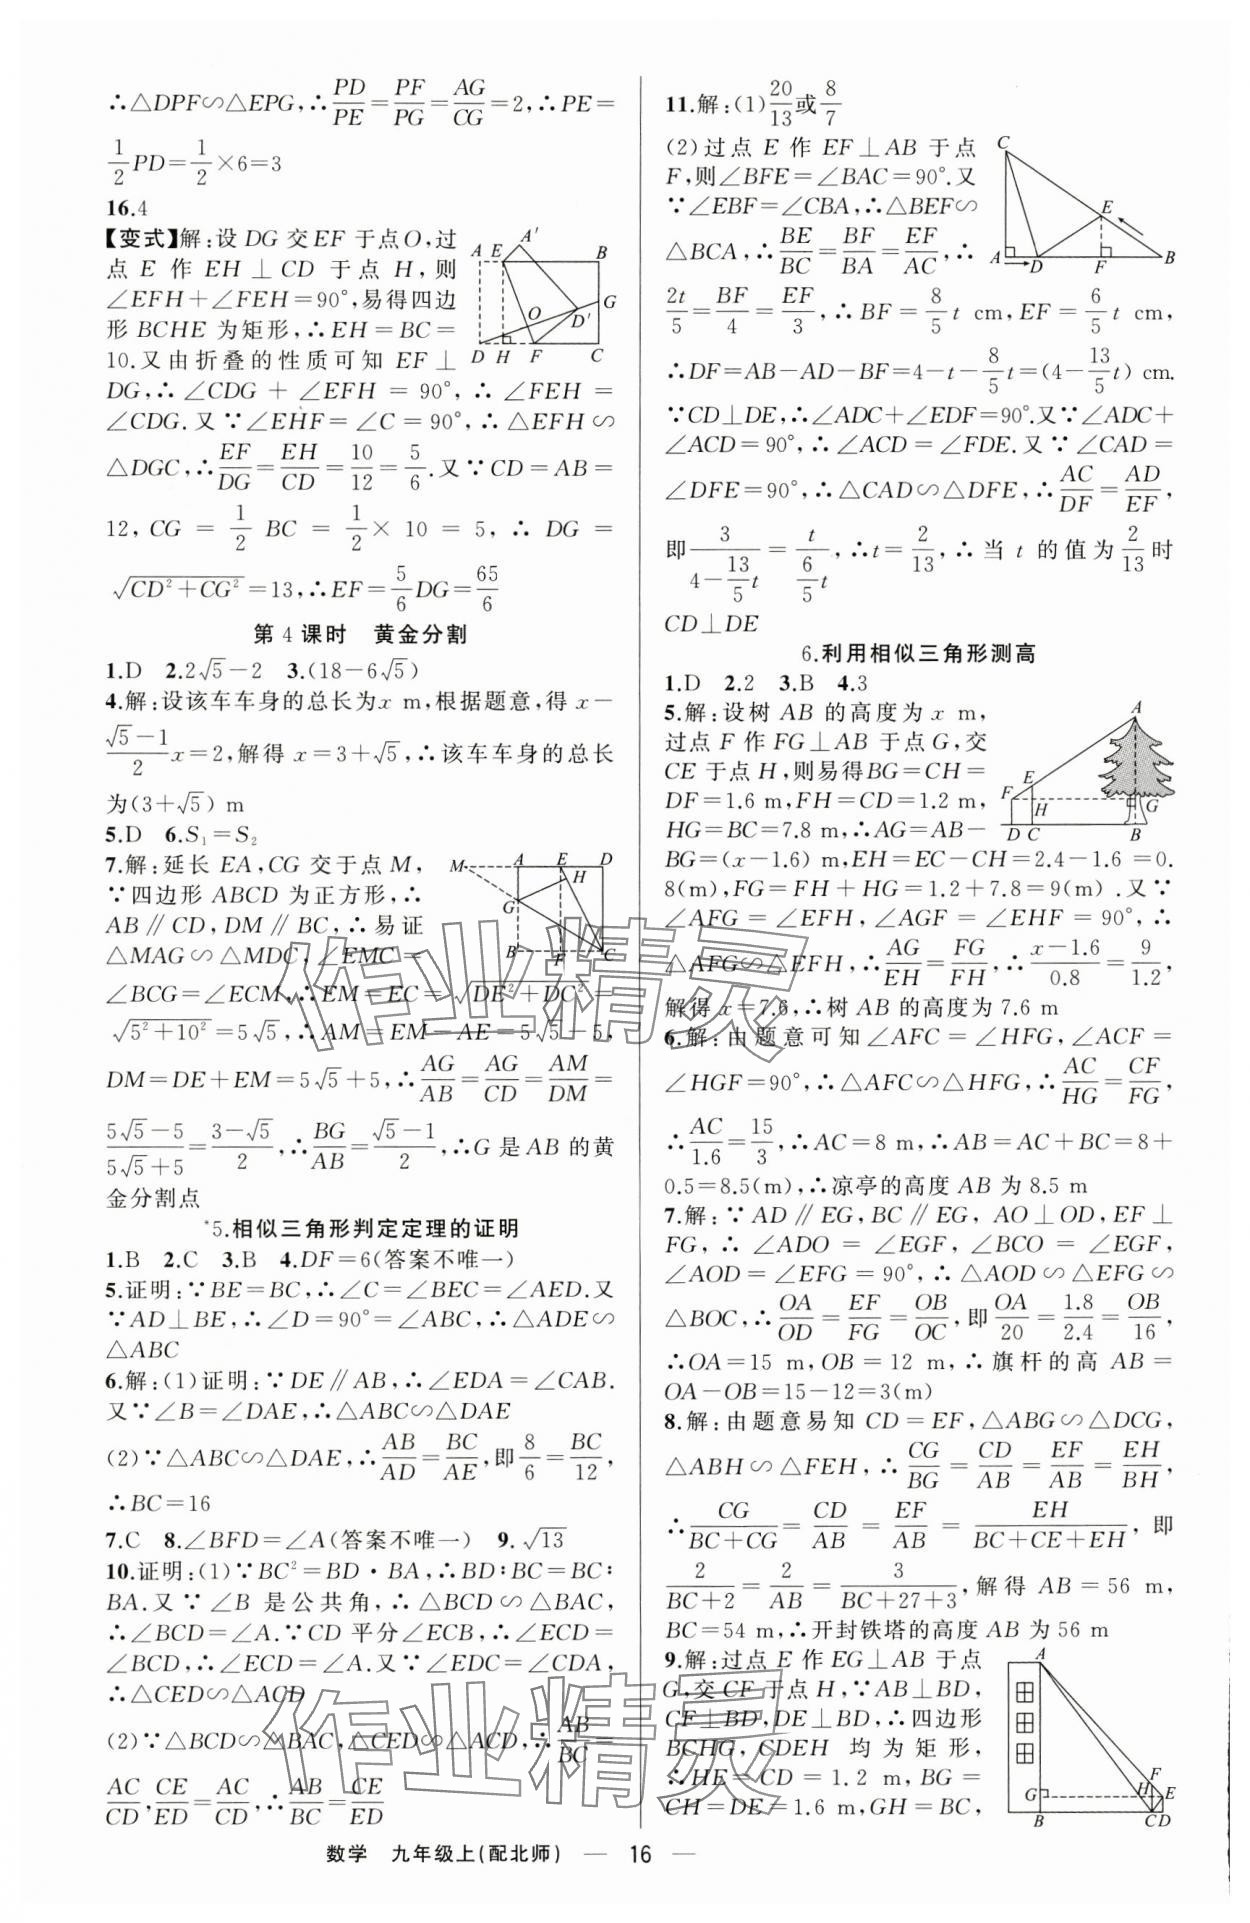 ∴△DPF∽△EPG,∴PD/PE=PF/PG=AG/CG=2,∴PE=
1/2PD=1/2×6=3
16.4
【变式】解:设 DG 交 EF 于点 O,过
点 E 作 EH⊥CD 于点 H,则
∠EFH+∠FEH=90°,易得四边
形 BCHE 为矩形,∴EH=BC=
10.又由折叠的性质可知 EF⊥
DG,∴∠CDG+∠EFH=90°,∴∠FEH=
∠CDG.又∵∠EHF=∠C=90°,∴△EFH∽
△DGC,∴EF/DG=EH/CD=10/12=5/6.又∵CD=AB=
12,CG=1/2 BC=1/2×10=5,∴DG=
√(CD²+CG²)=13,∴EF=5/6DG=65/6
A E A' B G O D' D H F C
第 4 课时 黄金分割
1.D 2.2√5-2 3.(18-6√5)
4.解:设该车车身的总长为x m,根据题意,得 x-
(√5-1)/2 x=2,解得 x=3+√5,∴该车车身的总长
为(3+√5) m
5.D 6.S₁=S₂
7.解:延长 EA,CG 交于点 M,
∵四边形 ABCD 为正方形,∴
AB∥CD,DM∥BC,∴易证
△MAG∽△MDC,∠EMC=
∠BCG=∠ECM,∴EM=EC=√(DE²+DC²)=
√(5²+10²)=5√5,∴AM=EM-AE=5√5-5,
DM=DE+EM=5√5+5,∴AG/AB=AG/CD=AM/DM=
(5√5-5)/(5√5+5)=(3-√5)/2,∴BG/AB=(√5-1)/2,∴G 是 AB 的黄
金分割点
M A E D H G B F C
*5.相似三角形判定定理的证明
1.B 2.C 3.B 4.DF=6(答案不唯一)
5.证明:∵BE=BC,∴∠C=∠BEC=∠AED.又
∵AD⊥BE,∴∠D=90°=∠ABC,∴△ADE∽
△ABC
6.解:(1)证明:∵DE∥AB,∴∠EDA=∠CAB.
又∵∠B=∠DAE,∴△ABC∽△DAE
(2)∵△ABC∽△DAE,∴AB/AD=BC/AE,即8/6=BC/12,
∴BC=16
7.C 8.∠BFD=∠A(答案不唯一) 9.√13
10.证明:(1)∵BC²=BD·BA,∴BD∶BC=BC∶
BA.又∵∠B 是公共角,∴△BCD∽△BAC,
∴∠BCD=∠A.∵CD 平分∠ECB,∴∠ECD=
∠BCD,∴∠ECD=∠A.又∵∠EDC=∠CDA,
∴△CED∽△ACD
(2)∵△BCD∽△BAC,△CED∽△ACD,∴AB/BC=
AC/CD,CE/ED=AC/CD,∴AB/BC=CE/ED
11.解:(1)20/13或8/7
(2)过点 E 作 EF⊥AB 于点
F,则∠BFE=∠BAC=90°.又
∵∠EBF=∠CBA,∴△BEF∽
△BCA,∴BE/BC=BF/BA=EF/AC,∴
2t/5=BF/4=EF/3,∴BF=8/5 t cm,EF=6/5 t cm,
∴DF=AB-AD-BF=4-t-8/5 t=(4-13/5 t) cm.
∵CD⊥DE,∴∠ADC+∠EDF=90°.又∵∠ADC+
∠ACD=90°,∴∠ACD=∠FDE.又∵∠CAD=
∠DFE=90°,∴△CAD∽△DFE,∴AC/DF=AD/EF,
即3/(4-13/5 t)=t/(6/5 t),∴t=2/13,∴当 t 的值为2/13时
CD⊥DE
C E A D F B
6.利用相似三角形测高
1.D 2.2 3.B 4.3
5.解:设树 AB 的高度为 x m,
过点 F 作 FG⊥AB 于点 G,交
CE 于点 H,则易得BG=CH=
DF=1.6 m,FH=CD=1.2 m,
HG=BC=7.8 m,∴AG=AB-
BG=(x-1.6) m,EH=EC-CH=2.4-1.6=0.
8(m),FG=FH+HG=1.2+7.8=9(m).又∵
∠AFG=∠EFH,∠AGF=∠EHF=90°,∴
△AFG∽△EFH,∴AG/EH=FG/FH,∴(x-1.6)/0.8=9/1.2,
解得 x=7.6,∴树 AB 的高度为 7.6 m
A E F H G D C B
6.解:由题意可知∠AFC=∠HFG,∠ACF=
∠HGF=90°,∴△AFC∽△HFG,∴AC/HG=CF/FG,
∴AC/1.6=15/3,∴AC=8 m,∴AB=AC+BC=8+
0.5=8.5(m),∴凉亭的高度 AB 为 8.5 m
7.解:∵AD∥EG,BC∥EG,AO⊥OD,EF⊥
FG,∴∠ADO=∠EGF,∠BCO=∠EGF,
∠AOD=∠EFG=90°,∴△AOD∽△EFG∽
△BOC,∴OA/OD=EF/FG=OB/OC,即OA/20=1.8/2.4=OB/16,
∴OA=15 m,OB=12 m,∴旗杆的高 AB=
OA-OB=15-12=3(m)
8.解:由题意易知 CD=EF,△ABG∽△DCG,
△ABH∽△FEH,∴CG/BG=CD/AB=EF/AB=EH/BH,
∴CG/(BC+CG)=CD/AB=EF/AB=EH/(BC+CE+EH),即
2/(BC+2)=2/AB=3/(BC+27+3),解得 AB=56 m,
BC=54 m,∴开封铁塔的高度 AB 为 56 m
9.解:过点 E 作 EG⊥AB 于点
G,交 CF 于点 H,∵AB⊥BD,
CF⊥BD,DE⊥BD,∴四边形
BCHG,CDEH 均为矩形,
∴HE=CD=1.2 m,BG=
CH=DE=1.6 m,GH=BC,
A F H E G B C D
数学 九年级上(配北师) — 16 —
作业精灵
作业精灵